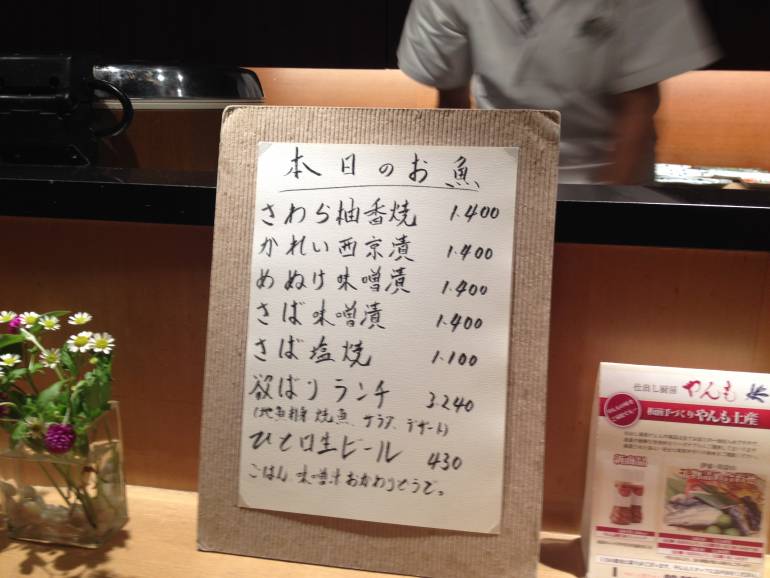 本日のお魚
さわら柚香焼 1.400
かれい西京漬 1.400
めぬけ味噌漬 1.400
さば味噌漬 1.400
さば塩焼 1.100
欲ばりランチ 3.240
(地魚刺身 焼魚 サラダ デザート)
ひと口生ビール 430
ごはん 味噌汁おかわりどうぞ。
仕出し厨房 やんも
板前手づくりやんも土産